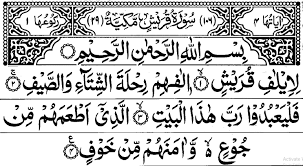 اٰیَاتُهَا ۴ (۱۰۶) سُوْرَةُ قُرَيْشٍ مَّكِّيَّةٌ (۲۹) رُكُوْعُهَا ۱
بِسْمِ اللهِ الرَّحْمٰنِ الرَّحِيْمِ
لِاِيْلٰفِ قُرَيْشٍ ۙ۱ اٖلٰفِهِمْ رِحْلَةَ الشِّتَآءِ وَالصَّيْفِ ۚ۲
فَلْيَعْبُدُوْا رَبَّ هٰذَا الْبَيْتِ ۙ۳ الَّذِيْٓ اَطْعَمَهُمْ مِّنْ
جُوْعٍ ۵ وَّاٰمَنَهُمْ مِّنْ خَوْفٍ ۴